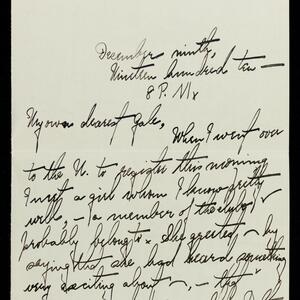 December ninth,
Nineteen hundred ten —
8 P. M.
My own dearest Gale,
When I went over
to the U. to register this morning
I met a girl whom I know pretty
well, — a member of the club I
probably belong to. She greeted me by
saying that she had heard something
very exciting about me, — that